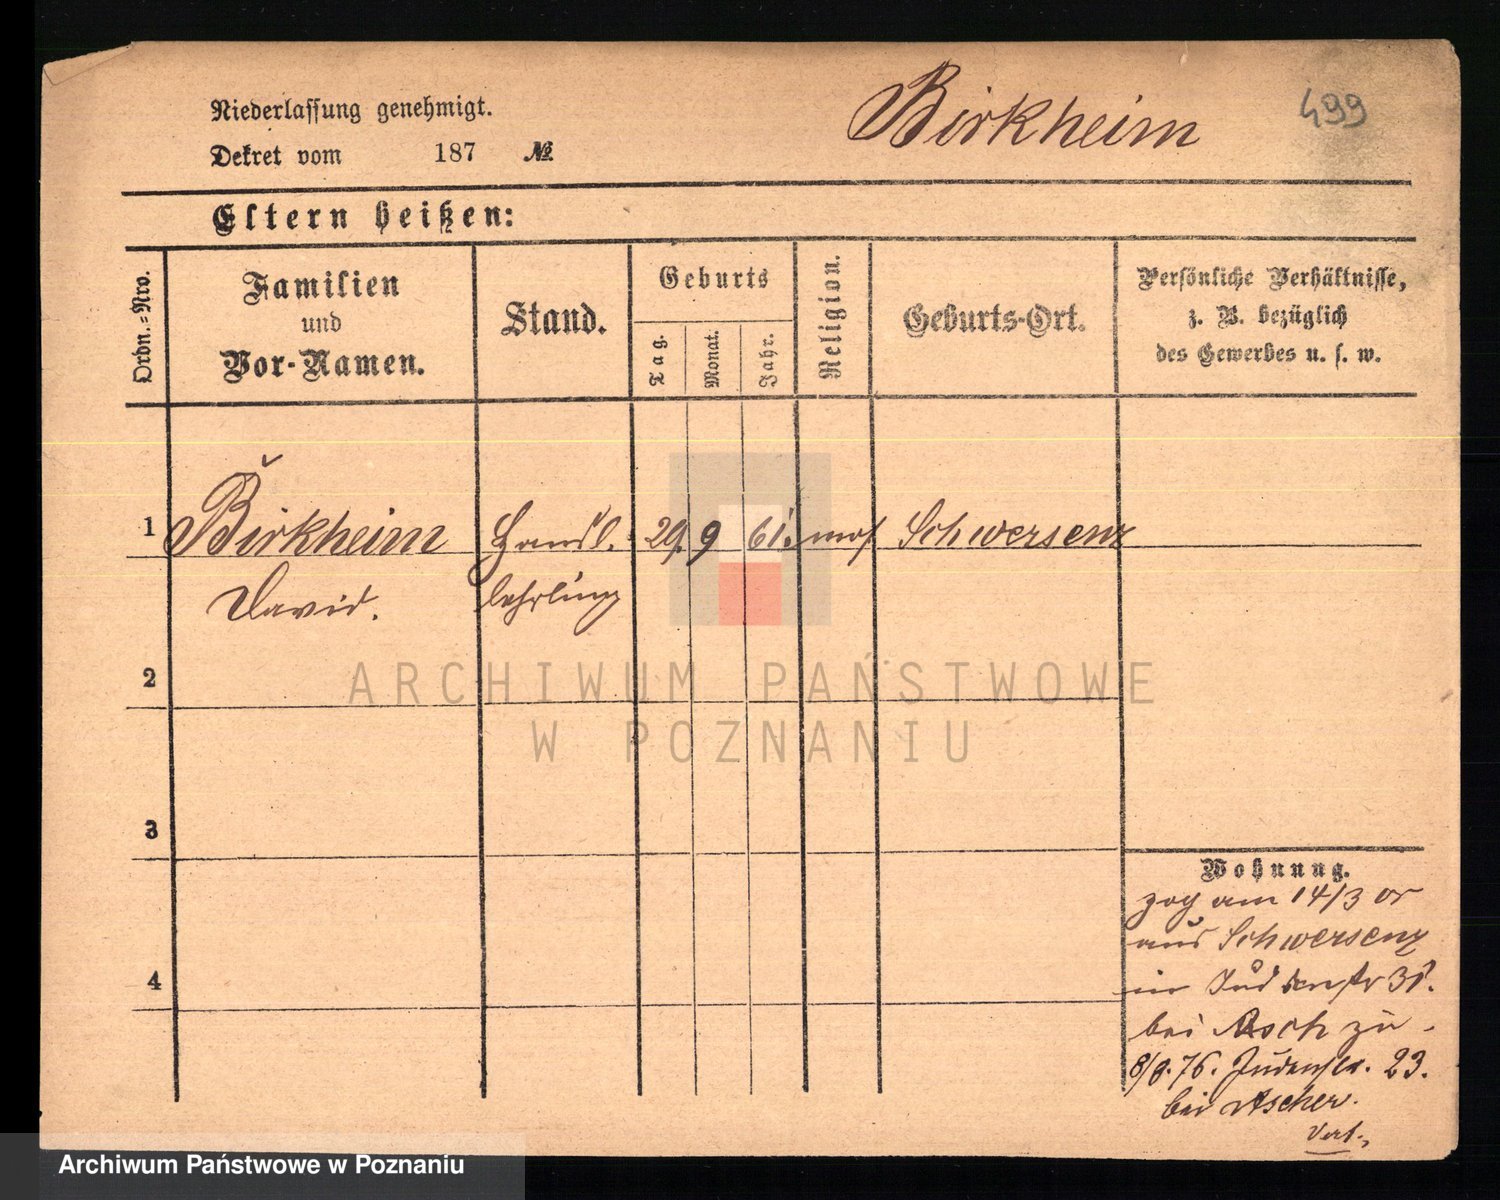 Niederlassung genehmigt.
Dekret vom 187 №
Birkheim
499
Eltern heißen:
Ordn.-Nro.
Familien
und
Vor-Namen.
Stand.
Geburts
Tag.
Monat.
Jahr.
Religion.
Geburts-Ort.
Persönliche Verhältnisse,
z. B. bezüglich
des Gewerbes u. s. w.
1 Birkheim Handl. 29. 9 61. mos. Schwersenz
David. lehrling
2
3
4
Wohnung.
zog am 14/3 cr
aus Schwersenz
in Judenstr 31.
bei Asch zu.
8/8.76. Judenstr. 23.
bei Ascher.
ARCHIWUM PAŃSTWOWE
W POZNANIU
Archiwum Państwowe w Poznaniu